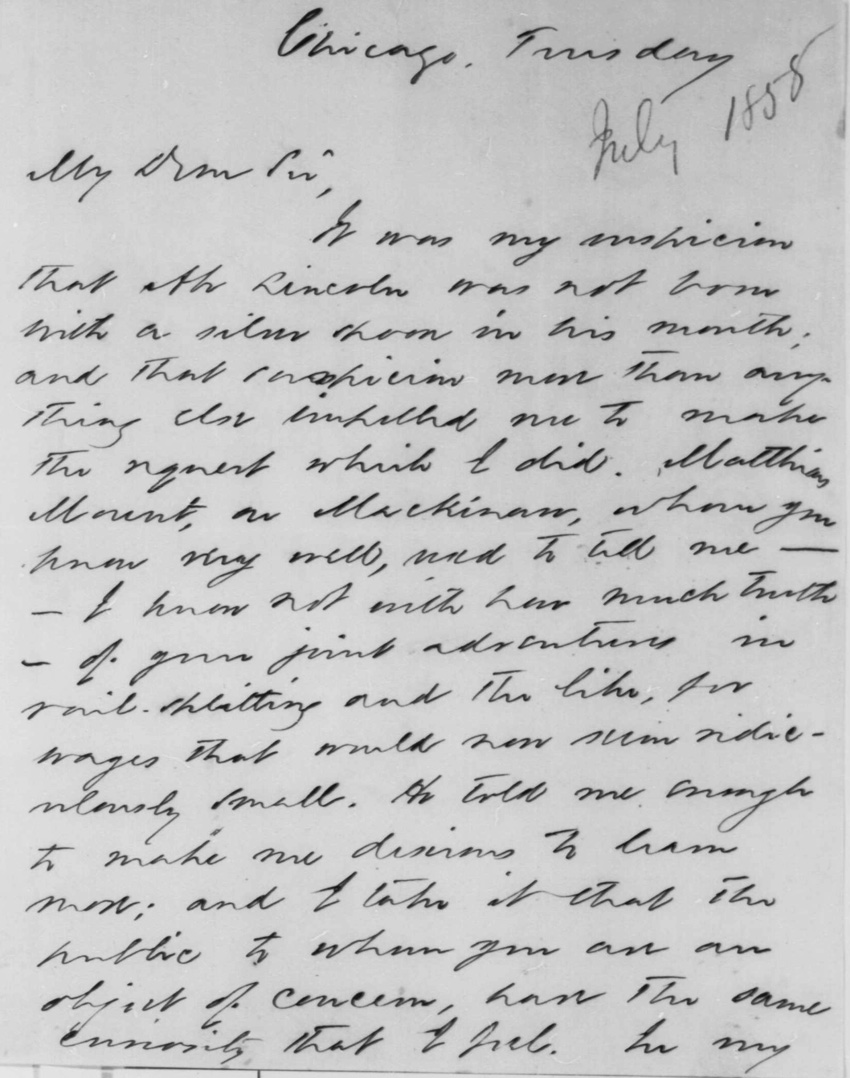 Chicago. Tuesday
July 1858
My Dear Sir,
It was my suspicion
that Mr Lincoln was not born
with a silver spoon in his mouth;
and that suspicion more than any-
thing else impelled me to make
the request which I did. Matthias
Mount, on Mackinaw, whom you
know very well, used to tell me —
— I know not with how much truth
— of your joint adventures in
rail-splitting and the like, for
wages that would now seem ridic-
ulously small. He told me enough
to make me desirous to learn
more; and I take it that the
public to whom you are an
object of concern, have the same
curiosity that I feel. In my